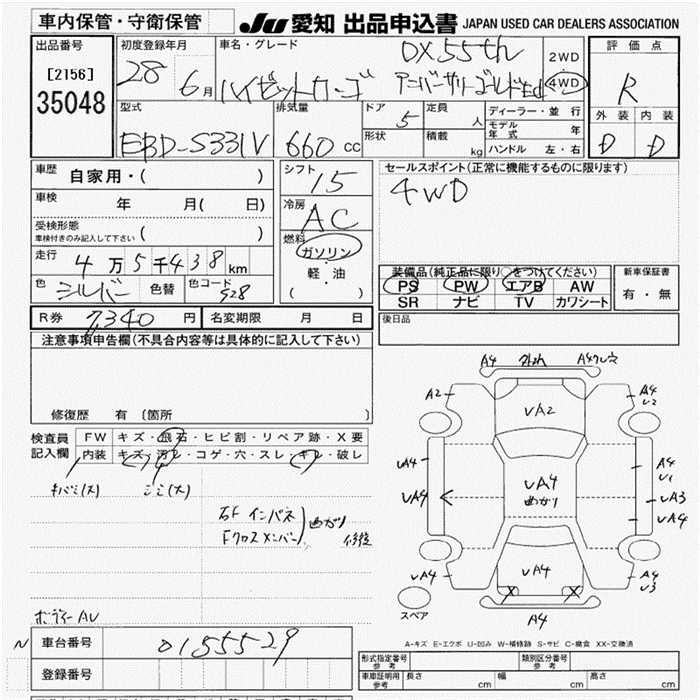 車内保管・守衛保管
JU 愛知 出品申込書 JAPAN USED CAR DEALERS ASSOCIATION
出品番号
[2156]
35048
初度登録年月
28 6月
車名・グレード
DX 55th
ハイゼットカーゴ アニバーサリーゴールドEd
2WD
4WD
評価点
R
外装 内装
D D
型式
EBD-S331V
排気量
660 cc
ドア
5
形状
定員
人
積載
kg
ディーラー・並行
モデル年式 年
ハンドル 左・右
車歴
自家用・( )
車検
年 月( 日)
受検形態
車検付きのみ記入して下さい ( )
走行
4万5千438km
色
シルバー
色替
色コード
S28
シフト
I5
冷房
AC
燃料
ガソリン
軽・油
( )
セールスポイント(正常に機能するものに限ります)
4WD
装備品(純正品に限り○をつけてください)
PS PW エアB AW
SR ナビ TV カワシート
新車保証書
有・無
R券
7,340円
名変期限 月 日
後日品
注意事項申告欄(不具合内容等は具体的に記入して下さい)
修復歴 有〔箇所 〕
検査員記入欄
FW キズ・飛石・ヒビ割・リペア跡・X要
内装 キズ・汚レ・コゲ・穴・スレ・キレ・破レ
キバミ(大) シミ(大)
右F インパネ
Fクロスメンバー 曲がり 修復
ボディーAU
A4 A4
A2 A4
U2
UA2
UA4 A4
U1
UA4 UA4 UA3
曲がり UA4
UA4 UA4 UA4
U3
X X
A4
スペア
A-キズ E-エクボ U-凹み W-補修跡 S-サビ C-腐食 XX-交換済
N
車台番号
0155529
登録番号
形式指定番号
参考
類別区分番号
参考
車庫証明用
参考
長さ cm 幅 cm 高さ cm